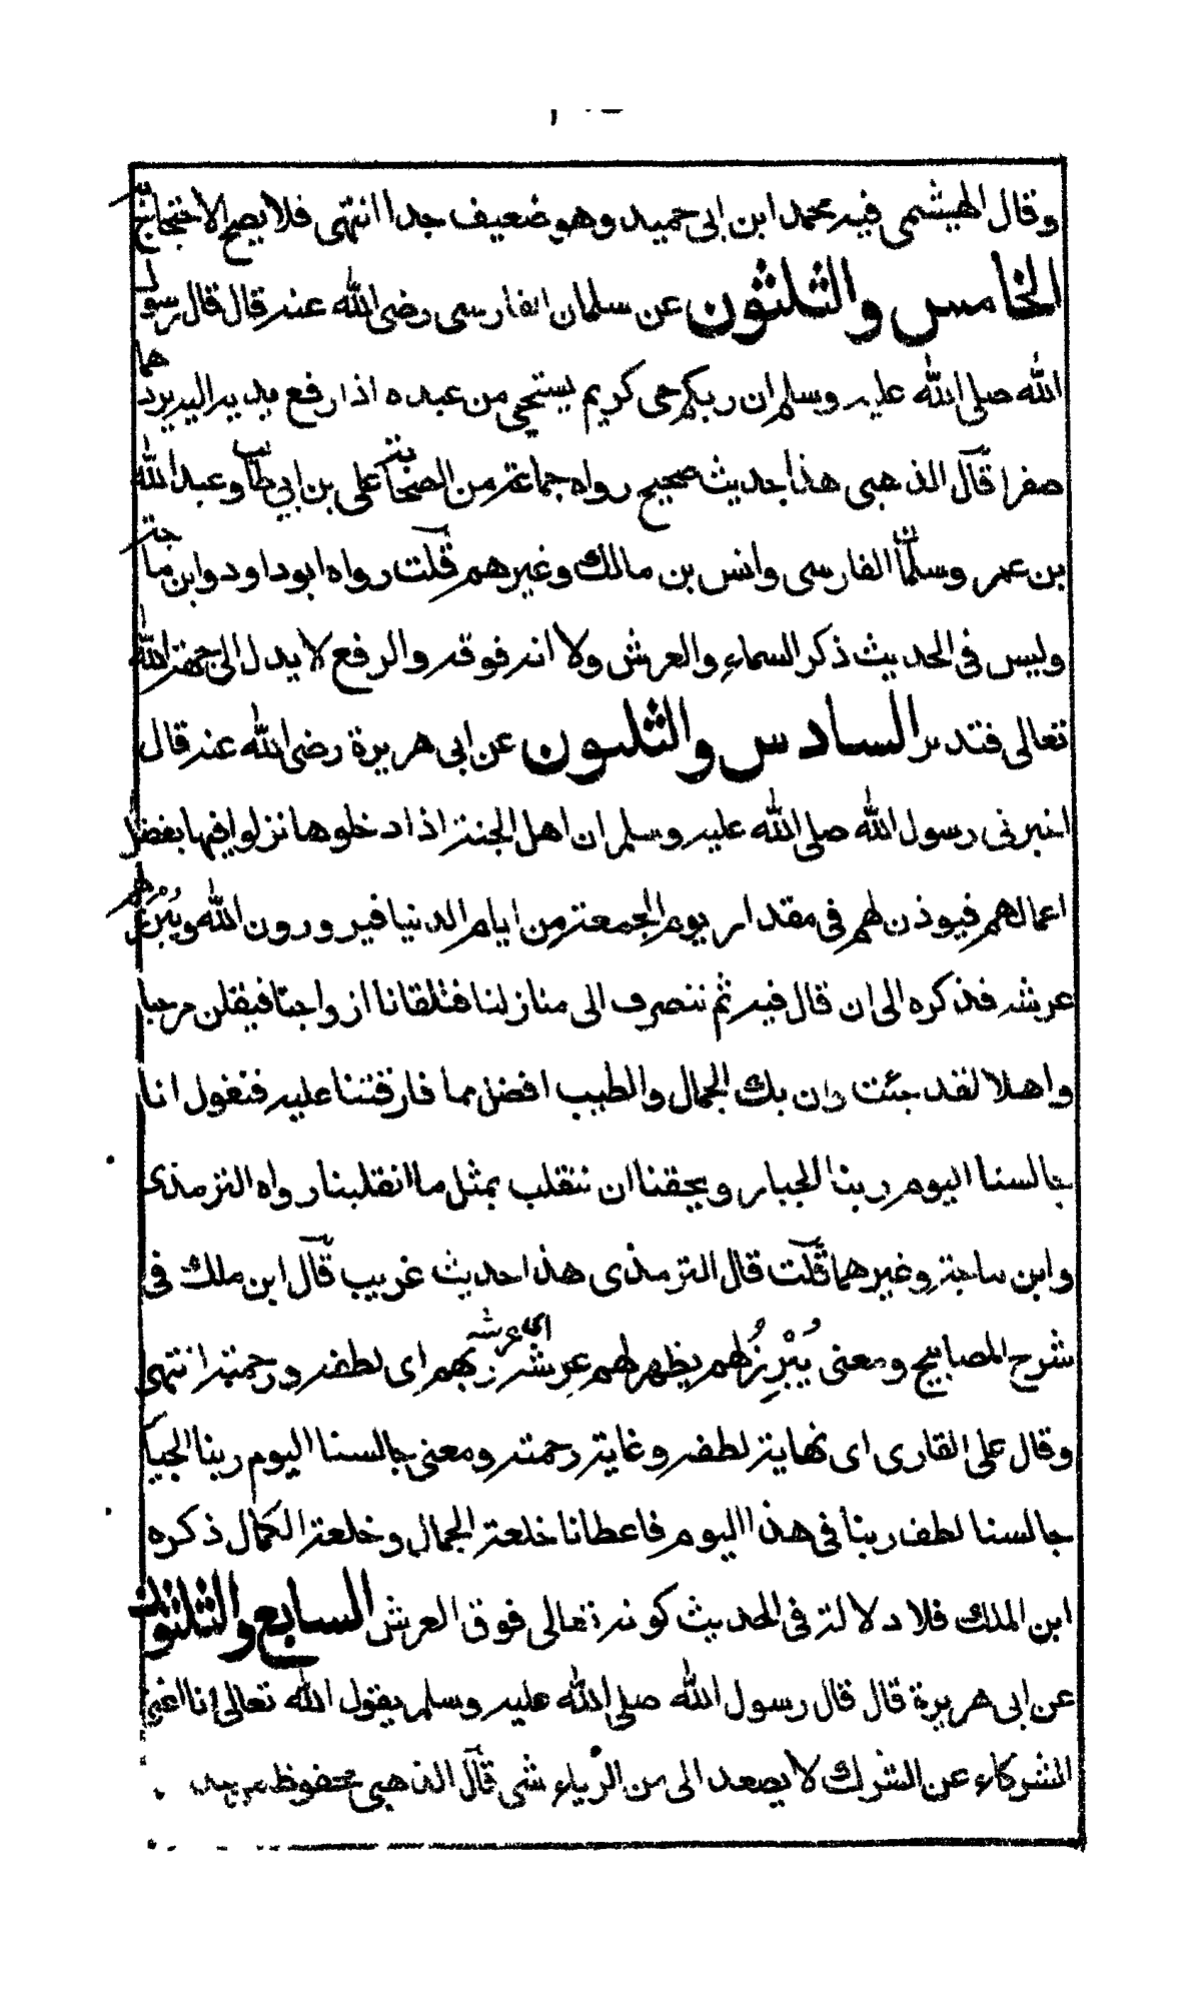 وقال الهيثمى فيه محمد ابن ابى حميد وهو ضعيف جدا انتهى فلا يصح الاحتجاج به
الخامس والثلثون عن سلمان الفارسى رضى الله عنه قال قال رسول
الله صلى الله عليه وسلم ان ربكم حى كريم يستحيى من عبده اذا رفع يديه اليه يردهما
صفرا قال الذهبى هذا حديث صحيح رواه جماعة من الصحابة على بن ابي طالب وعبد الله
بن عمر وسلمان الفارسى وانس بن مالك وغيرهم قلت رواه ابو داود وابن ماجة
وليس فى الحديث ذكر السماء والعرش ولا انه فوقه والرفع لا يدل الى جهة الله
تعالى فتدبر السادس والثلثون عن ابى هريرة رضى الله عنه قال
اخبرنى رسول الله صلى الله عليه وسلم ان اهل الجنة اذا دخلوها نزلوا فيها بفضل
اعمالهم فيوذن لهم فى مقدار يوم الجمعة من ايام الدنيا فيرورون الله ويبرز لهم
عرشه فذكره الى ان قال فيه ثم ننصرف الى منازلنا فتلقانا ازواجنا فيقلن مرحبا
واهلا لقد جئت وان بك الجمال والطيب افضل مما فارقتنا عليه فنقول انا
جالسنا اليوم ربنا الجبار ويحقنا ان ننقلب بمثل ما انقلبنا رواه الترمذى
وابن ماجة وغيرهما قلت قال الترمذى هذا حديث غريب قال ابن ملك فى
شرح المصابيح ومعنى يُبْرِزُ لهم يظهر لهم عرشه ربهم اى لطفه ورحمته انتهى
وقال على القارى اى نهاية لطفه وغاية رحمته ومعنى جالسنا اليوم ربنا الجبار
جالسنا لطف ربنا فى هذا اليوم فاعطانا خلعة الجمال وخلعة الكمال ذكره
ابن الملك فلا دلالة فى الحديث كونه تعالى فوق العرش السابع والثلثون
عن ابى هريرة قال قال رسول الله صلى الله عليه وسلم يقول الله تعالى انا اغنى
الشركاء عن الشرك لا يصعد الى من الرياء شى قال الذهبى محفوظ